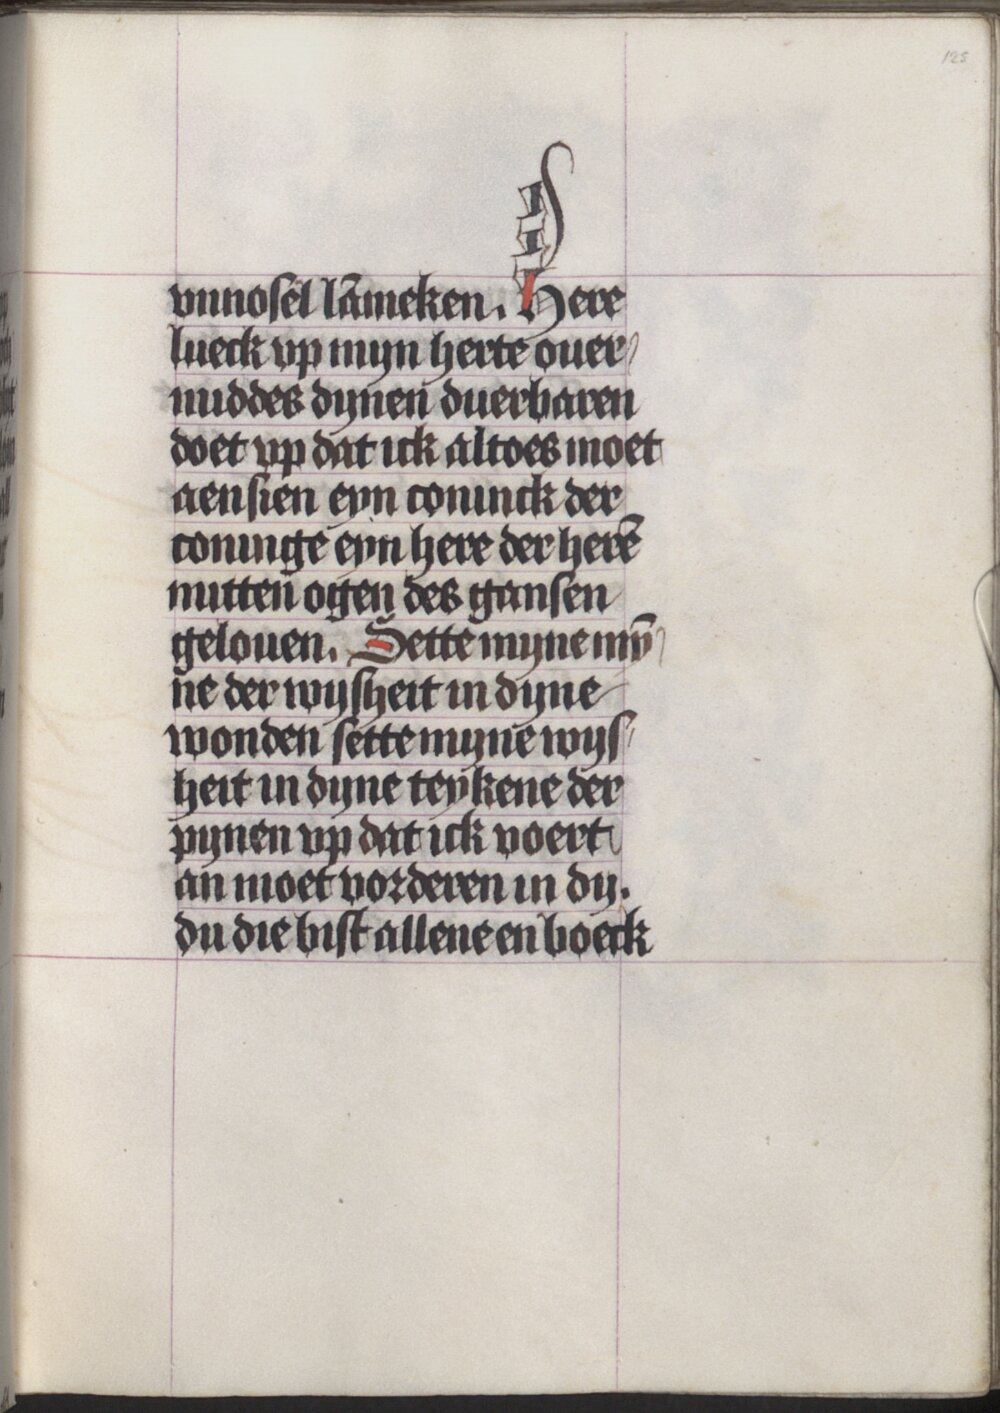 125
vnnosel lāmeken. Here
lueck vp myn herte ouer
middes dynen duerbaren
doet vp dat ick altoes moet
aensien eyn coninck der
coninge eyn here der herē
mitten ogen des gansen
gelouen. Sette myne myn̄
ne der wysheit in dyne
wonden sette myne wys
heit in dyne teykene der
pynen vp dat ick voert
an moet vorderen in dy.
du die bist allene en boeck